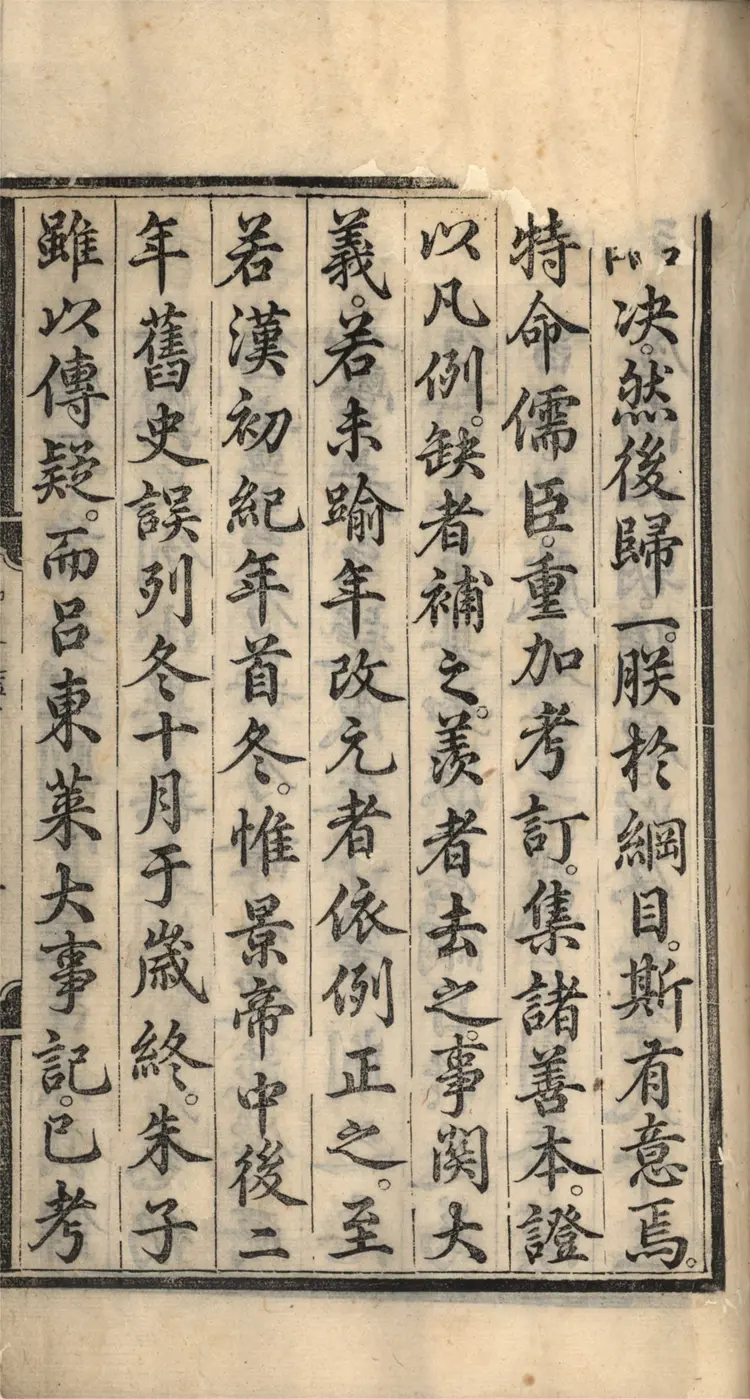 决。然後歸一。朕於綱目。斯有意焉。
特命儒臣。重加考訂。集諸善本。證
以凡例。缺者補之。羨者去之。事関大
義。若未踰年改元者依例正之。至
若漢初紀年首冬。惟景帝中後二
年舊史誤列冬十月于歲終。朱子
雖以傳疑。而呂東萊大事記。已考